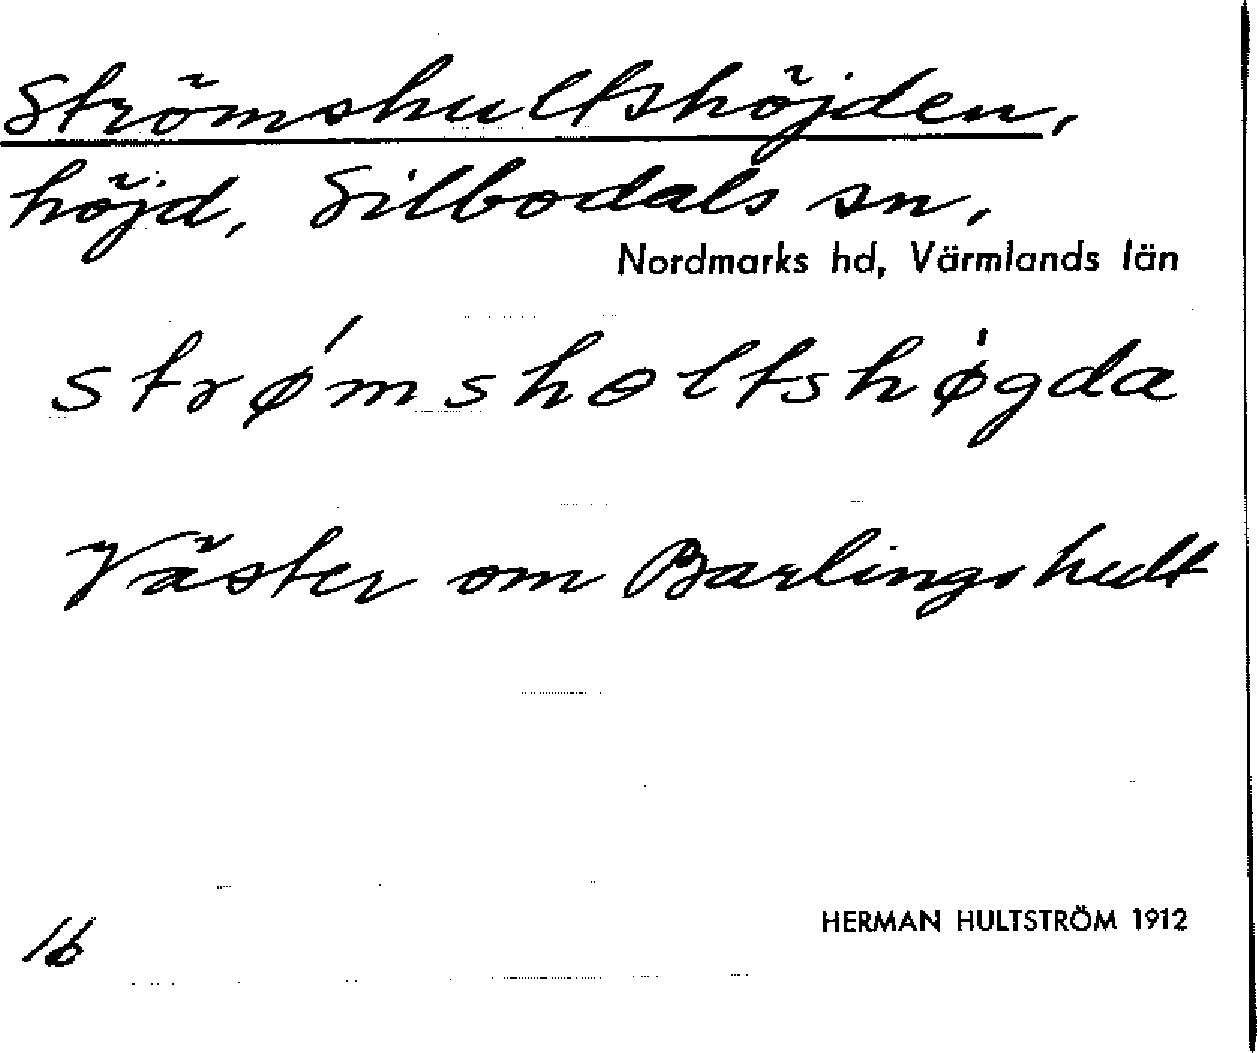 Strömshultshöjden,
höjd, Silbodals sn,
Nordmarks hd, Värmlands län
strǿmshɵltshø̀gda
Väster om Barlingshult
16
HERMAN HULTSTRÖM 1912